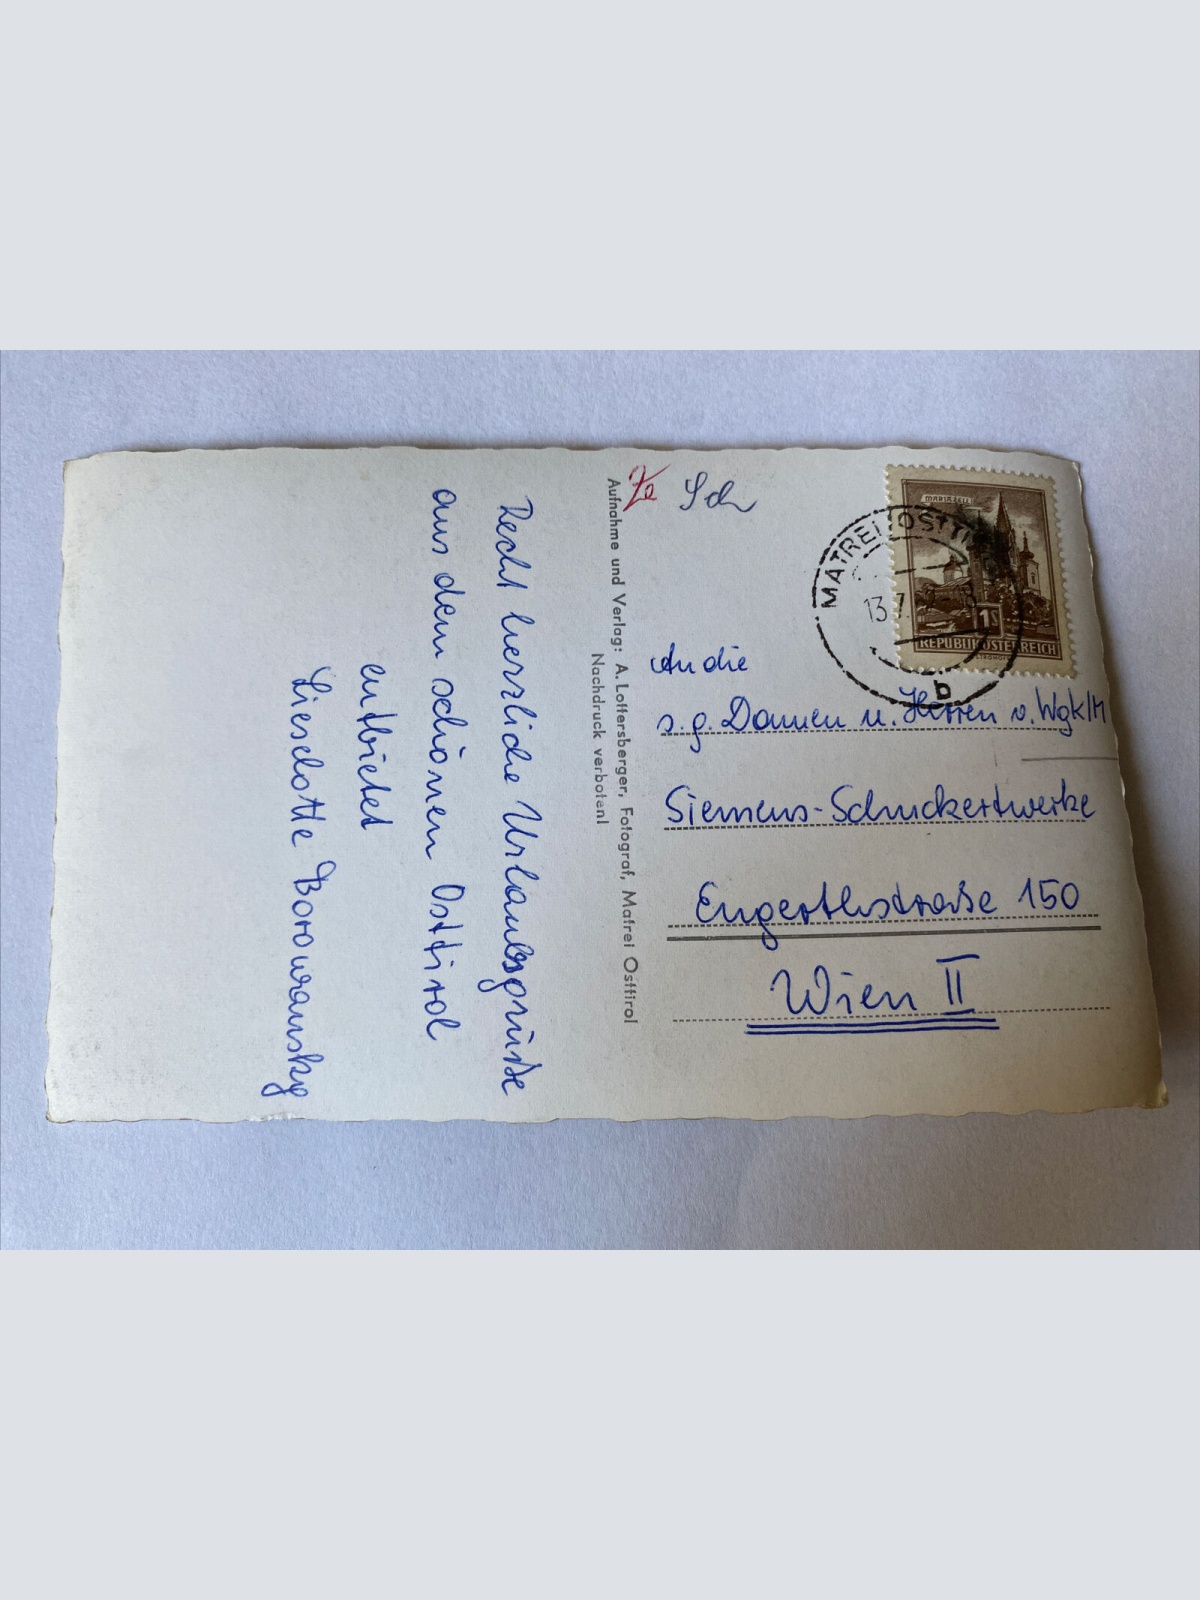 Recht herzliche Urlaubsgrüße
aus dem schönen Osttirol
entbietet
Lieselotte Borowansky
Aufnahme und Verlag: A. Lottersberger, Fotograf, Matrei Osttirol
Nachdruck verboten!
Sch
MARIAZELL
1S
REPUBLIK ÖSTERREICH
MATREI OSTTIROL
13.7.
b
An die
s.g. Damen u. Herren v. Wgk/M
Siemens-Schuckertwerke
Engerthstraße 150
Wien II